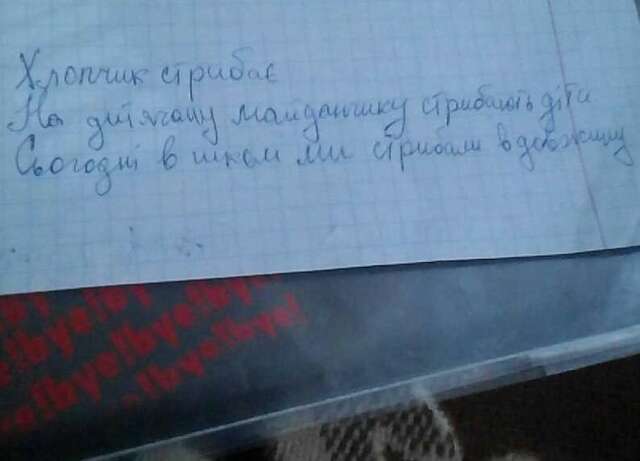 Хлопчик стрибає
На дитячому майданчику стрибають діти
Сьогодні в школі ми стрибали в довжину
bye!bye!bye!bye!
!bye!bye!bye!
!bye!bye!